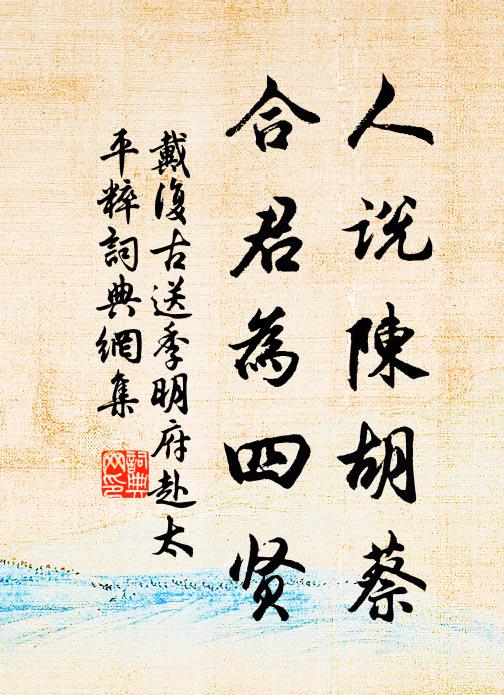 人说陳胡蔡
合君為四贤
戴復古送季明府赴太
平粹詞典網集
詞典
网印